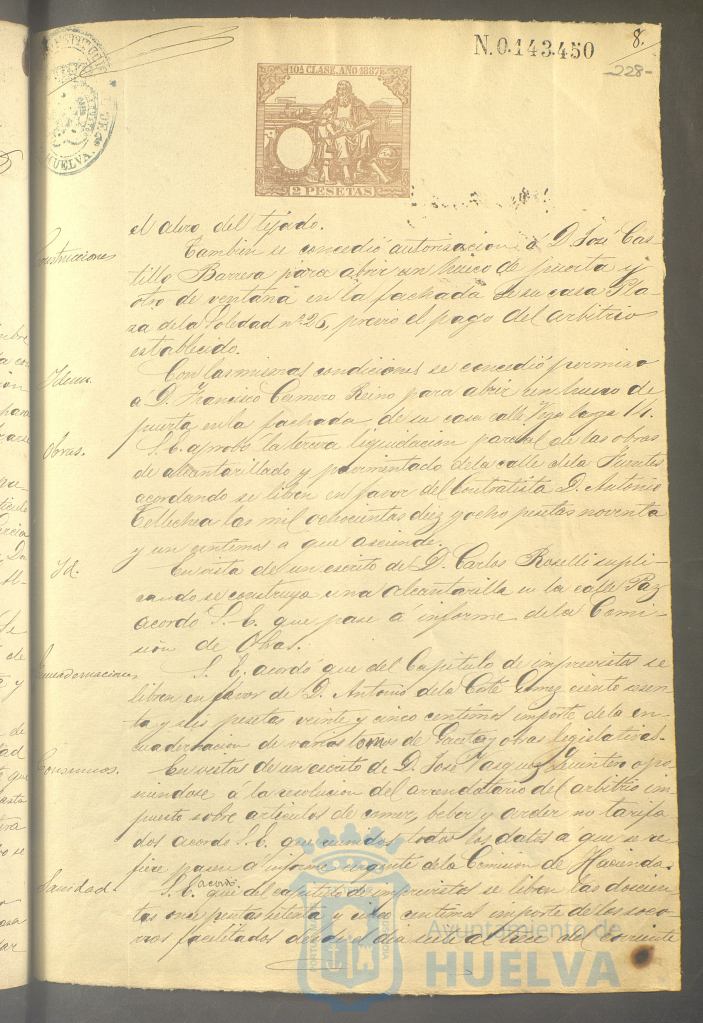 N.0.143.450
8.
228-
HUELVA.
10ª CLASE, AÑO 1887
2 PESETAS
el alero del tejado.
Construcciones
Tambien se concedió autorizacion á D. José Cas-
tillo Barrera para abrir un hueco de puerta y
otro de ventana en la fachada de su casa Pla-
za de la Soledad nº 26, previo el pago del arbitrio
establecido.
Idem.
Con las mismas condiciones se concedió permiso
a D. Francisco Carnero Reino para abrir un hueco de
puerta en la fachada de su casa calle larga 11.
Obras.
S. E. aprobó la tercera liquidacion parcial de las obras
de alcantarillado y pavimentado de la calle de la Fuentes
acordando se libren en favor del Contratista D. Antonio
Tellechea las mil ochocientas diez y ocho pesetas noventa
y un centimos a que asciende.
Id.
En vista de un escrito de D. Carlos Roselli supli-
cando se construya una alcantarilla en la calle Paz
acordó S. E. que pase á informe de la Comi-
sión de Obras.
Encuadernaciones
S. E. acordó que del Capitulo de imprevistos se
libren en favor de D. Antonio de la Corte Gomez ciento sesen-
ta y seis pesetas veinte y cinco centimos importe de la en-
cuadernacion de varios tomos de Gaceta y obras legislativas.
Consumos.
En vista de un escrito de D. José Vasquez Quintero opo-
niendose á la resolucion del arrendatario del arbitrio im-
puesto sobre articulos de comer, beber y arder no tarifa-
dos acordó S. E. que unidos todos los datos á que se re-
fiere pasen á informe urgente de la Comision de Hacienda.
Sanidad.
S. E. acordó que del capitulo de imprevistos se libren las doscien-
tas once pesetas setenta y cinco centimos importe de los soco-
rros facilitados desde el dia siete al trece del corriente
Ayuntamiento de
HUELVA